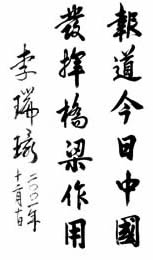 報道今日中國
發揮橋梁作用
李瑞環
二〇〇一年
十二月十日